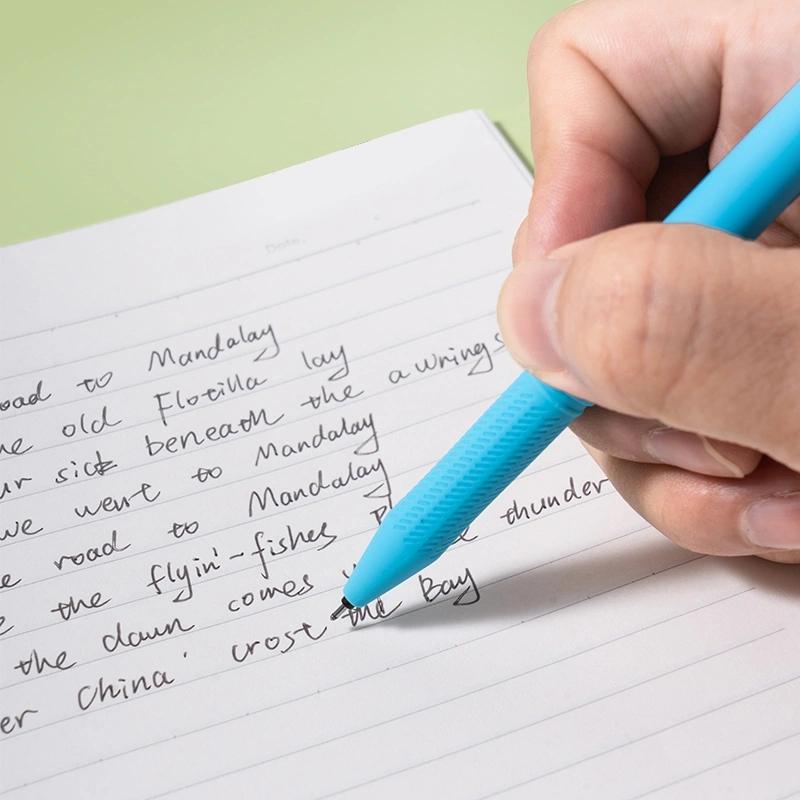 Date.
oad to Mandalay
he old Flotilla lay
ur sick beneath the awrings
we went to Mandalay
e road to Mandalay
e the flyin'-fishes
the dawn comes thunder
er China' crost the Bay